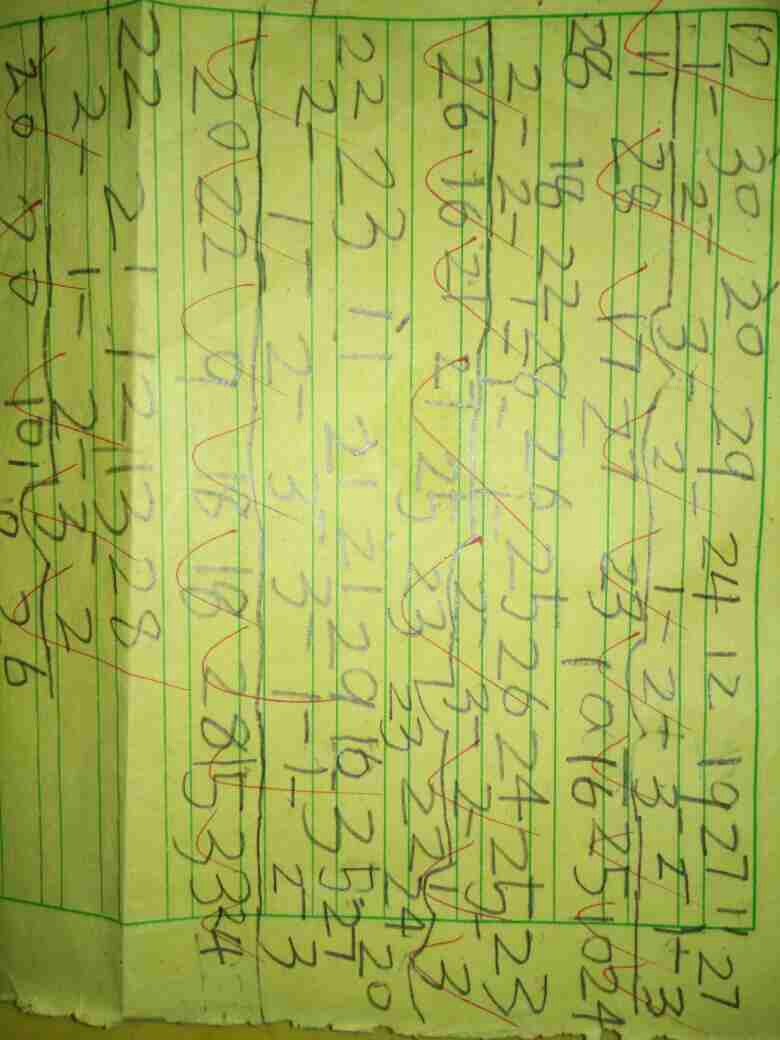 12 30 20 29 24 12 19 27 11 27
1- 2- 3- 2- 1- 2- 3- 1- 1- 3
11 28 17 27 23 10 16 25 10 24
28 18 22 28 26 25 26 24 25 23
2- 2- 1- 1- 1- 2- 3- 2- 1- 3
26 16 21 27 25 23 23 22 24
22 23 11 21 21 29 16 35 27 20
2- 1- 2- 3- 3- 1- 1- 2- 3
20 22 9 18 18 28 15 33 24
22 21 12 13 28
2- 1- 2- 3- 2
20 20 10 10 26